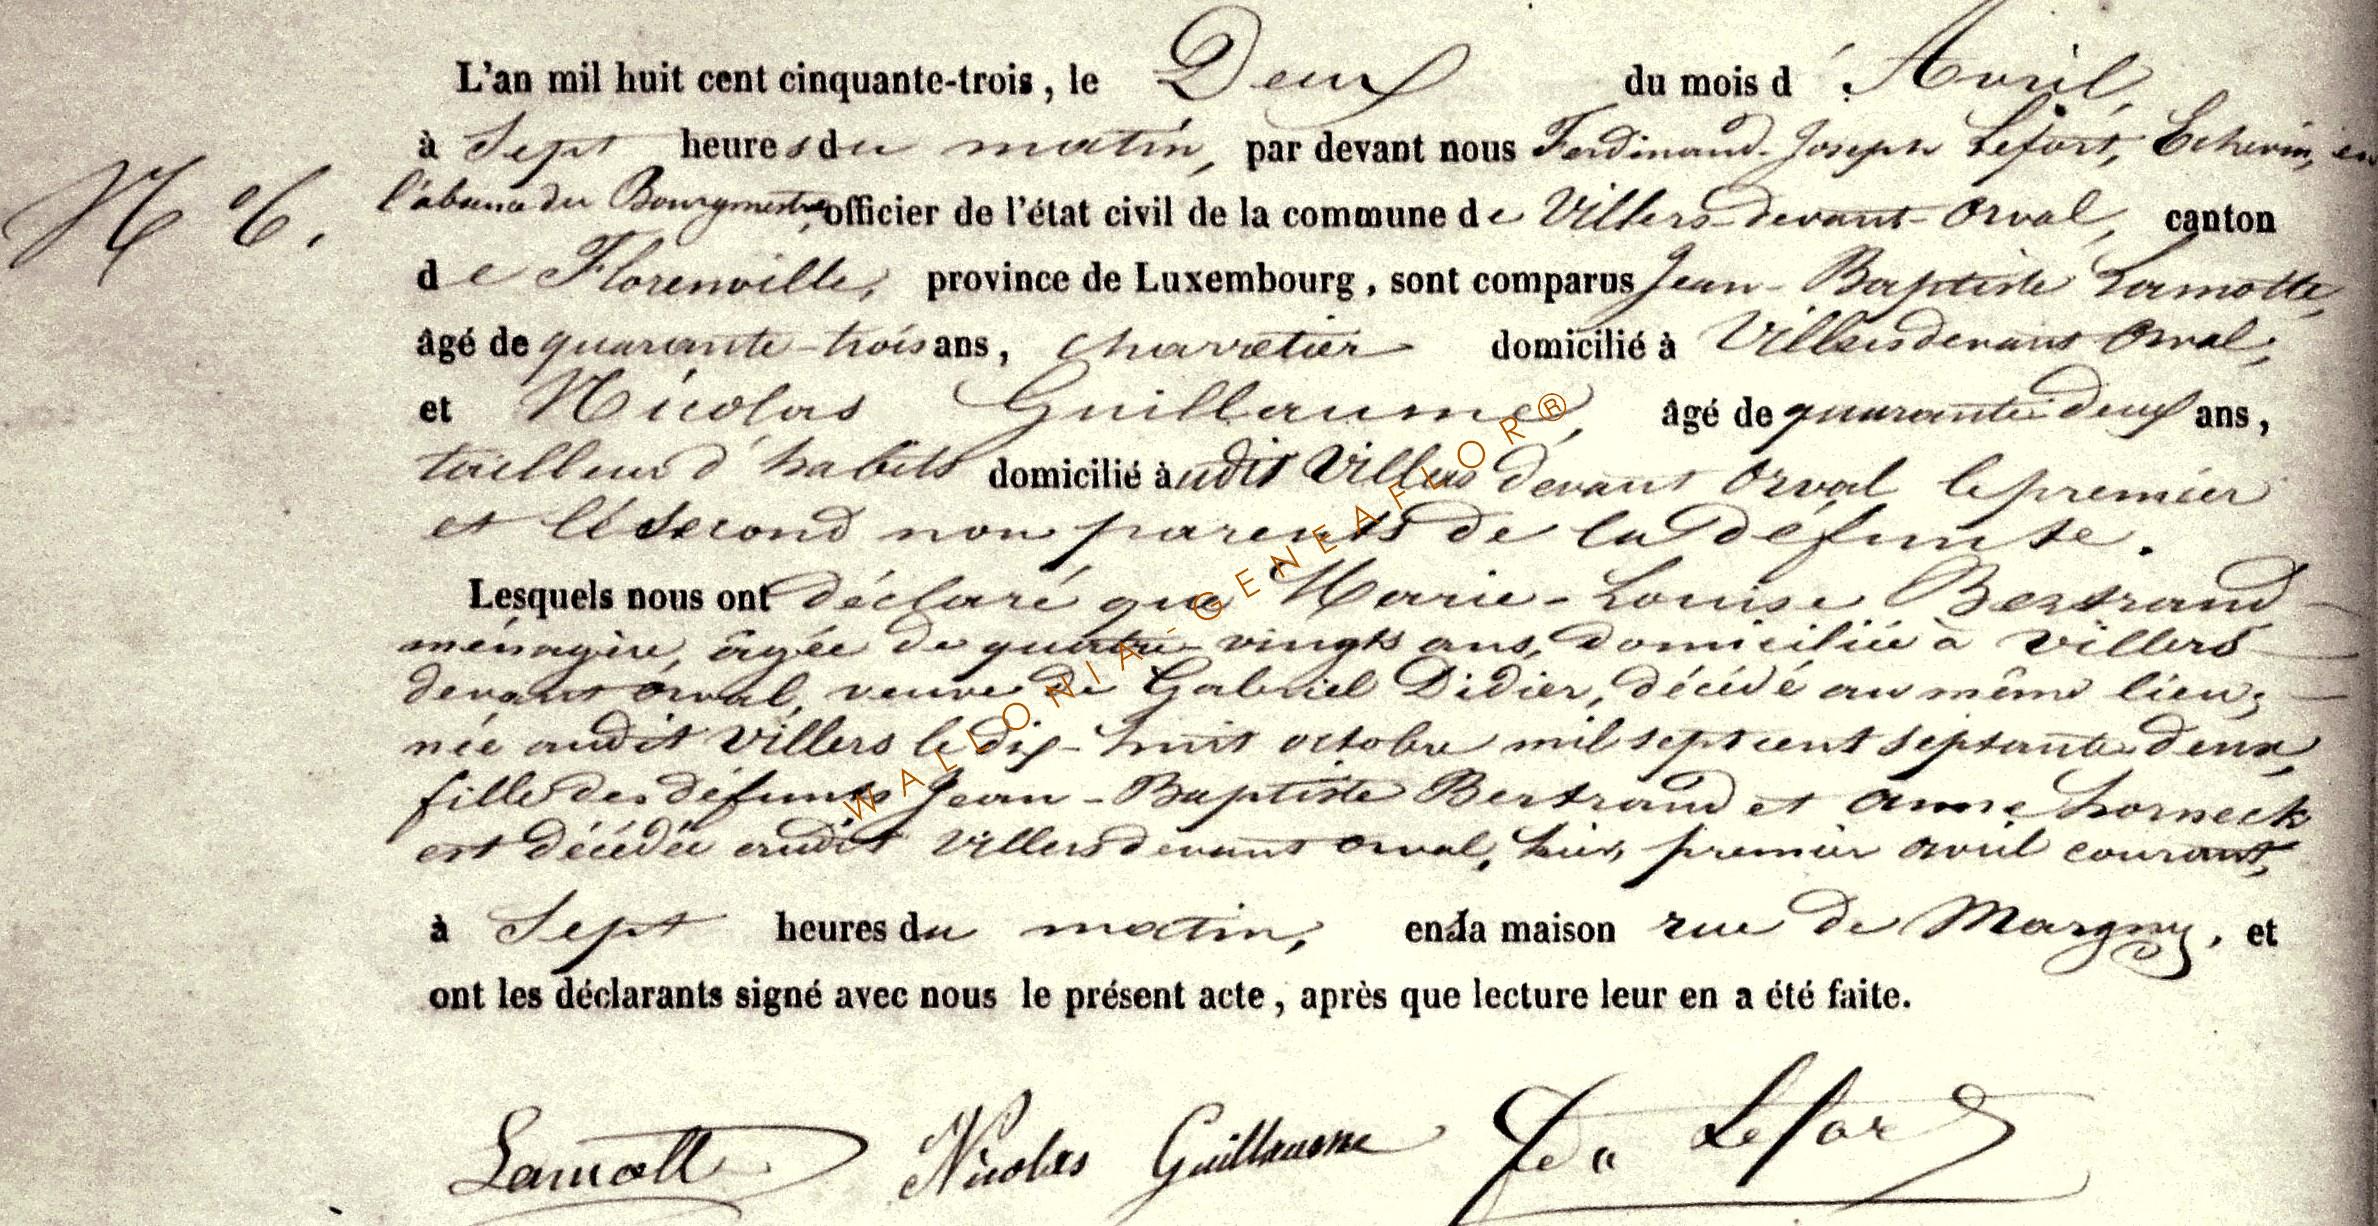 L'an mil huit cent cinquante-trois, le Deux du mois d'Avril,
à Sept heures du matin, par devant nous Ferdinand-Joseph Lefort, Echevin, en
N° 6. l'absence du Bourgmestre, officier de l'état civil de la commune de Villers-devant-Orval, canton
de Florenville, province de Luxembourg, sont comparus Jean-Baptiste Lamotte,
âgé de quarante-trois ans, charretier domicilié à Villers devant Orval,
et Nicolas Guillaume, âgé de quarante deux ans,
tailleur d'habits domicilié audit Villers devant Orval le premier
et le second non parents de la défunte.
Lesquels nous ont déclaré que Marie-Louise Bertrand
ménagère, âgée de quatre-vingts ans, domiciliée à Villers
devant orval, veuve de Gabriel Didier, décédé au même lieu;
née audit Villers le dix-huit octobre mil sept cent septante deux,
fille des défunts Jean-Baptiste Bertrand et Anne horneck
est décédée audit Villers devant orval, hier, premier avril courant,
à Sept heures du matin, en la maison rue de Margny, et
ont les déclarants signé avec nous le présent acte, après que lecture leur en a été faite.
Lamott Nicolas Guillaume Lefort
WALLONIA-GENEAFLOR®